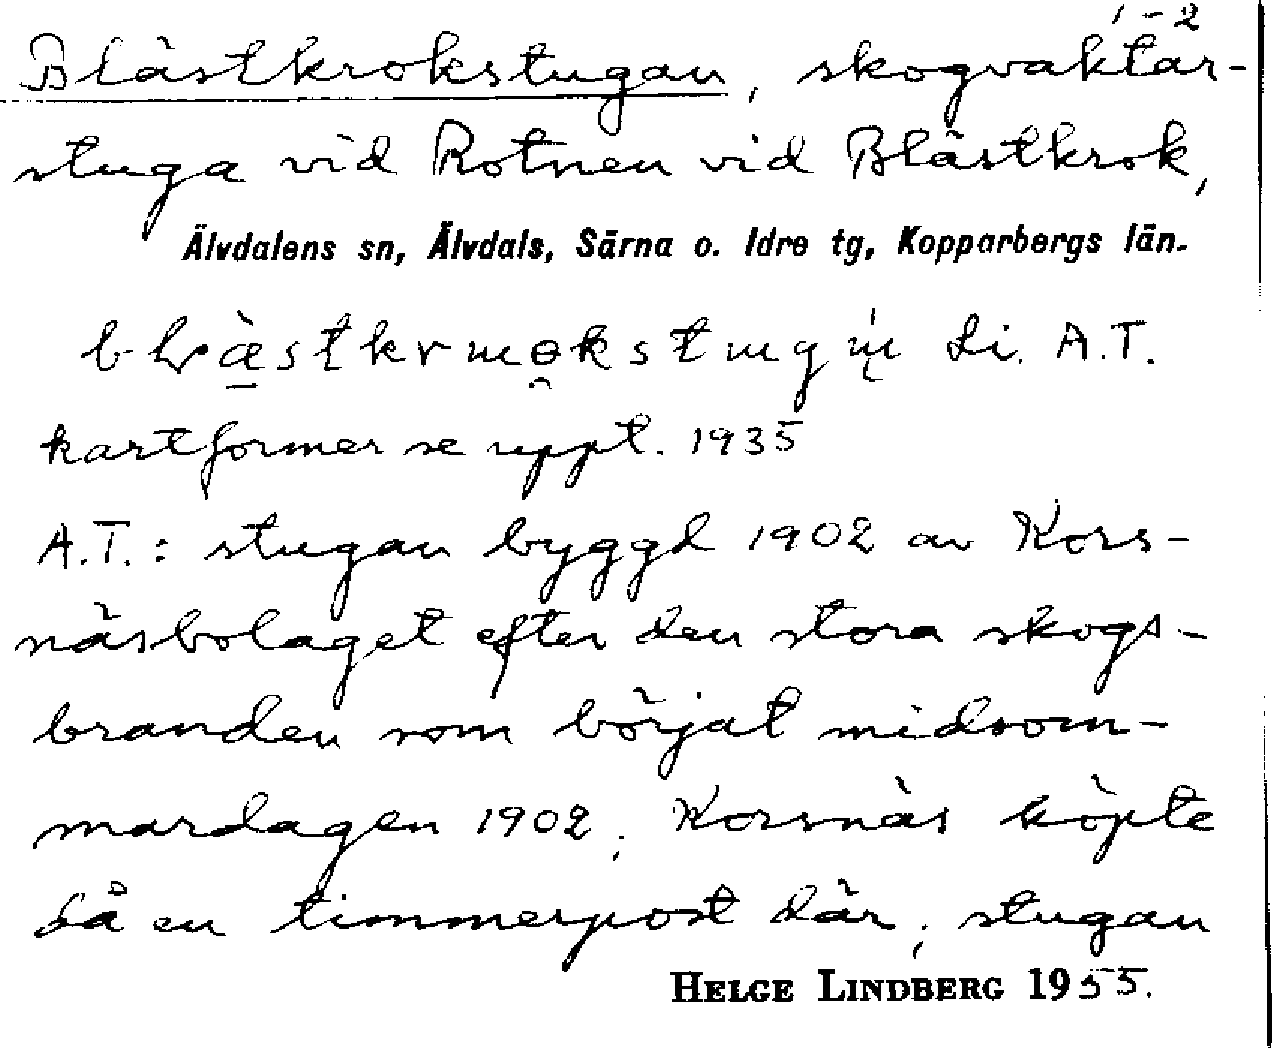 1-2
Blästkrokstugan, skogvaktar-
stuga vid Rotnen vid Blästkrok,
Älvdalens sn, Älvdals, Särna o. Idre tg, Kopparbergs län.
Li. A.T.
kartformer se uppt. 1935
A.T.: stugan byggd 1902 av Kors-
näsbolaget efter den stora skogs-
branden som börjat midsom-
mardagen 1902; Korsnäs köpte
då en timmerpost där; stugan
HELGE LINDBERG 1955.